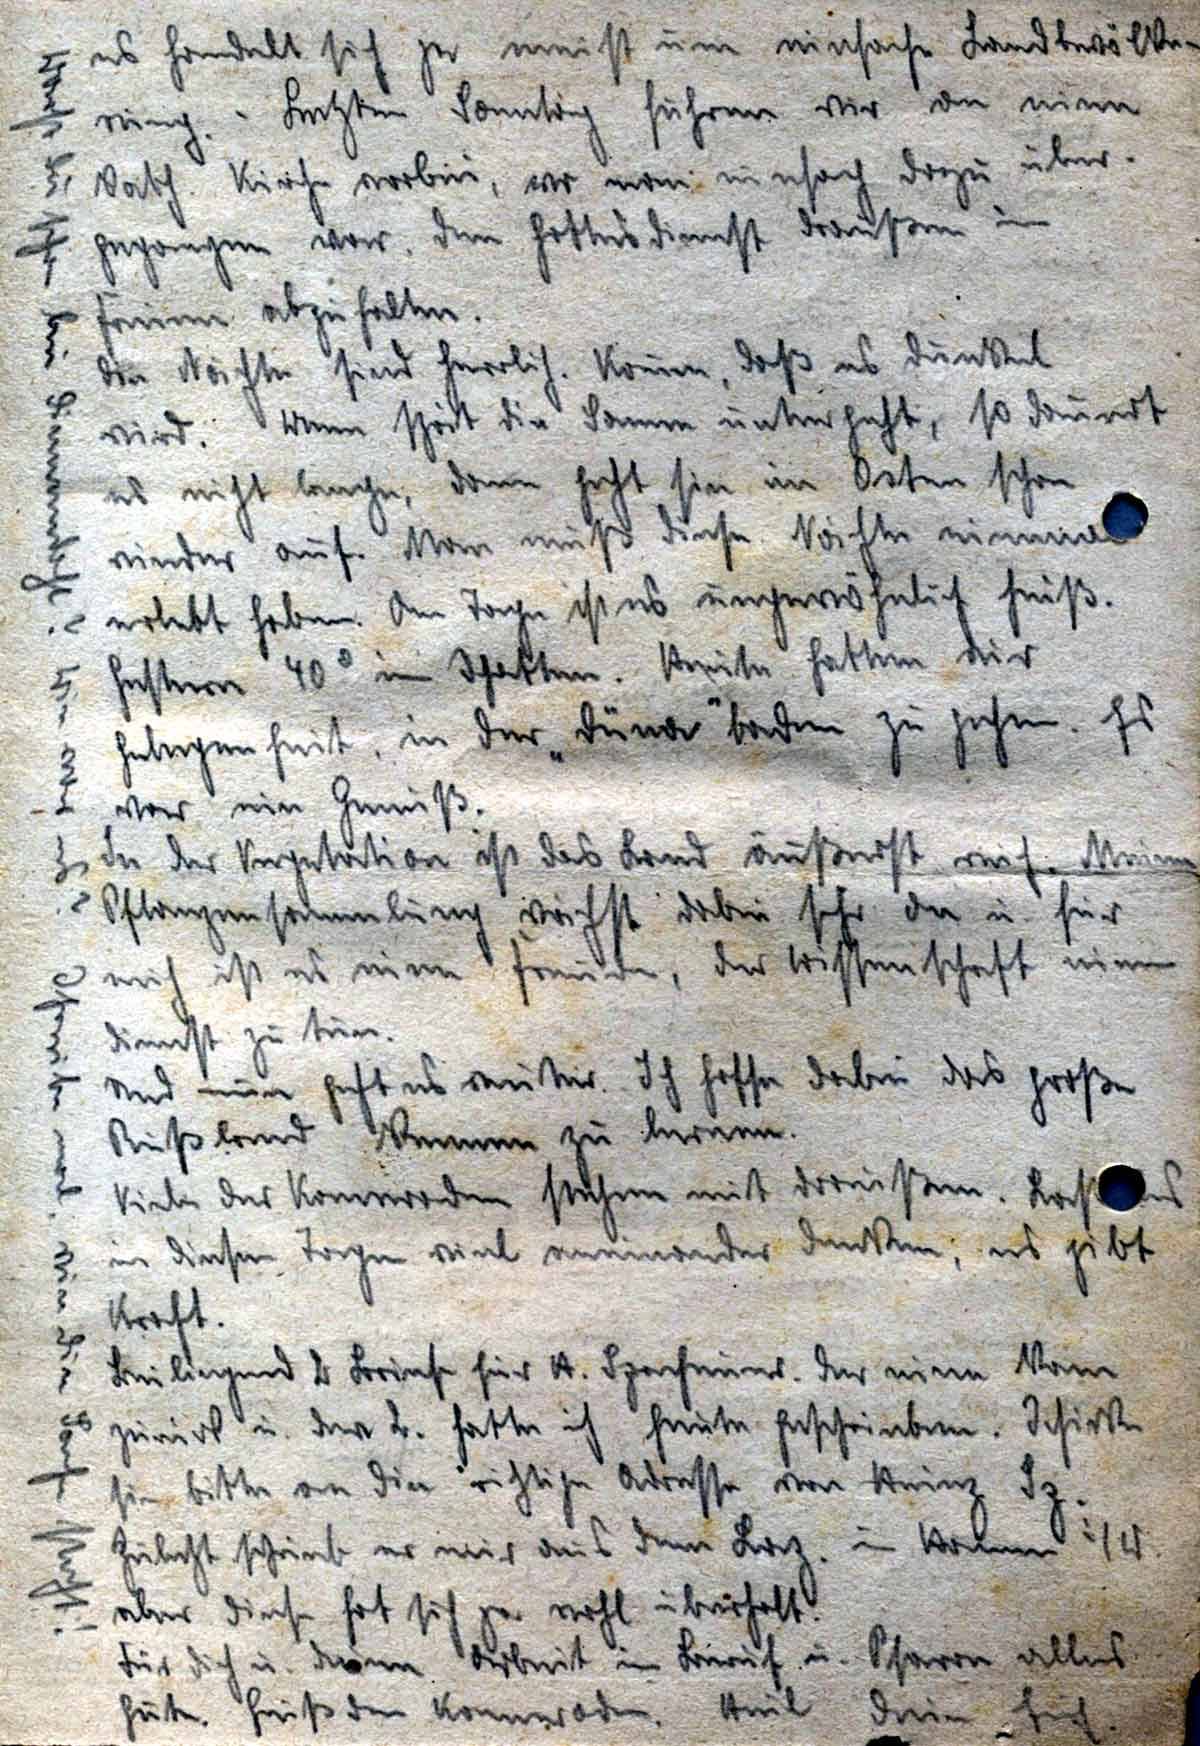 es handelt sich ja meist um einfache Landbevölke-
rung. - Letzten Sonntag fuhren wir an einer
kath. Kirche vorbei, wo man einfach dazu über-
gegangen war, den Gottesdienst draußen im
Freien abzuhalten.
Die Nächte sind herrlich. Kaum, daß es dunkel
wird. Wenn spät die Sonne untergeht, so dauert
es nicht lange, dann geht sie im Osten schon
wieder auf. Man muß diese Nächte einmal
erlebt haben. Am Tage ist es ungewöhnlich heiß.
Gestern 40° im Schatten. Heute hatten wir
Gelegenheit, in der „Düna" baden zu gehen. Es
war ein Genuß.
In der Vegetation ist das Land äußerst reich. Meine
Pflanzensammlung wächst dabei sehr an u. für
mich ist es eine Freude, der Wissenschaft einen
Dienst zu tun.
Und nun geht es weiter. Ich hoffe dabei das große
Rußland kennen zu lernen.
Viele der Kameraden stehen mit draußen. Laßt uns
in diesen Tagen viel aneinander denken, es gibt
Kraft.
Beiliegend 2 Briefe für H. Der eine kam
zurück u. den 2. hatte ich heute geschrieben. Schicke
sie bitte an die richtige Adresse von Heinz Sz.
Zuletzt schrieb er mir aus dem Laz. in Hamm i/W.
aber diese hat sich ja wohl überholt.
Für Dich u. Deine Arbeit in Beruf u. Pfarre alles
Gute. Grüß den Kameraden. Heil Dein
Schreibe mal, wie die